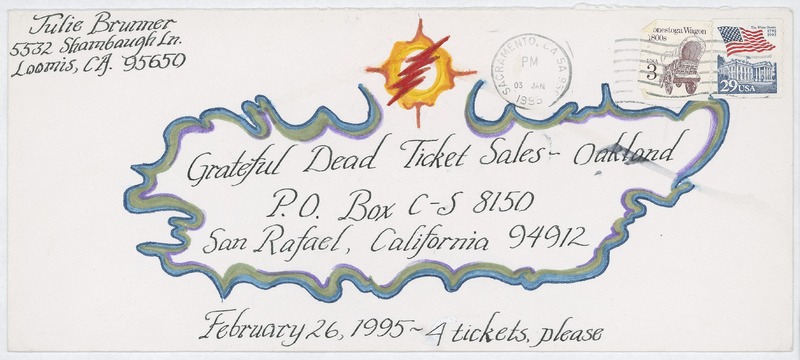 Julie Brunner
5532 Shambaugh Ln.
Loomis, CA. 95650
SACRAMENTO, CA
PM
03 JAN
1995
1800s
USA
3
29 USA
Grateful Dead Ticket Sales~ Oakland
P.O. Box C-S 8150
San Rafael, California 94912
February 26, 1995~4 tickets, please